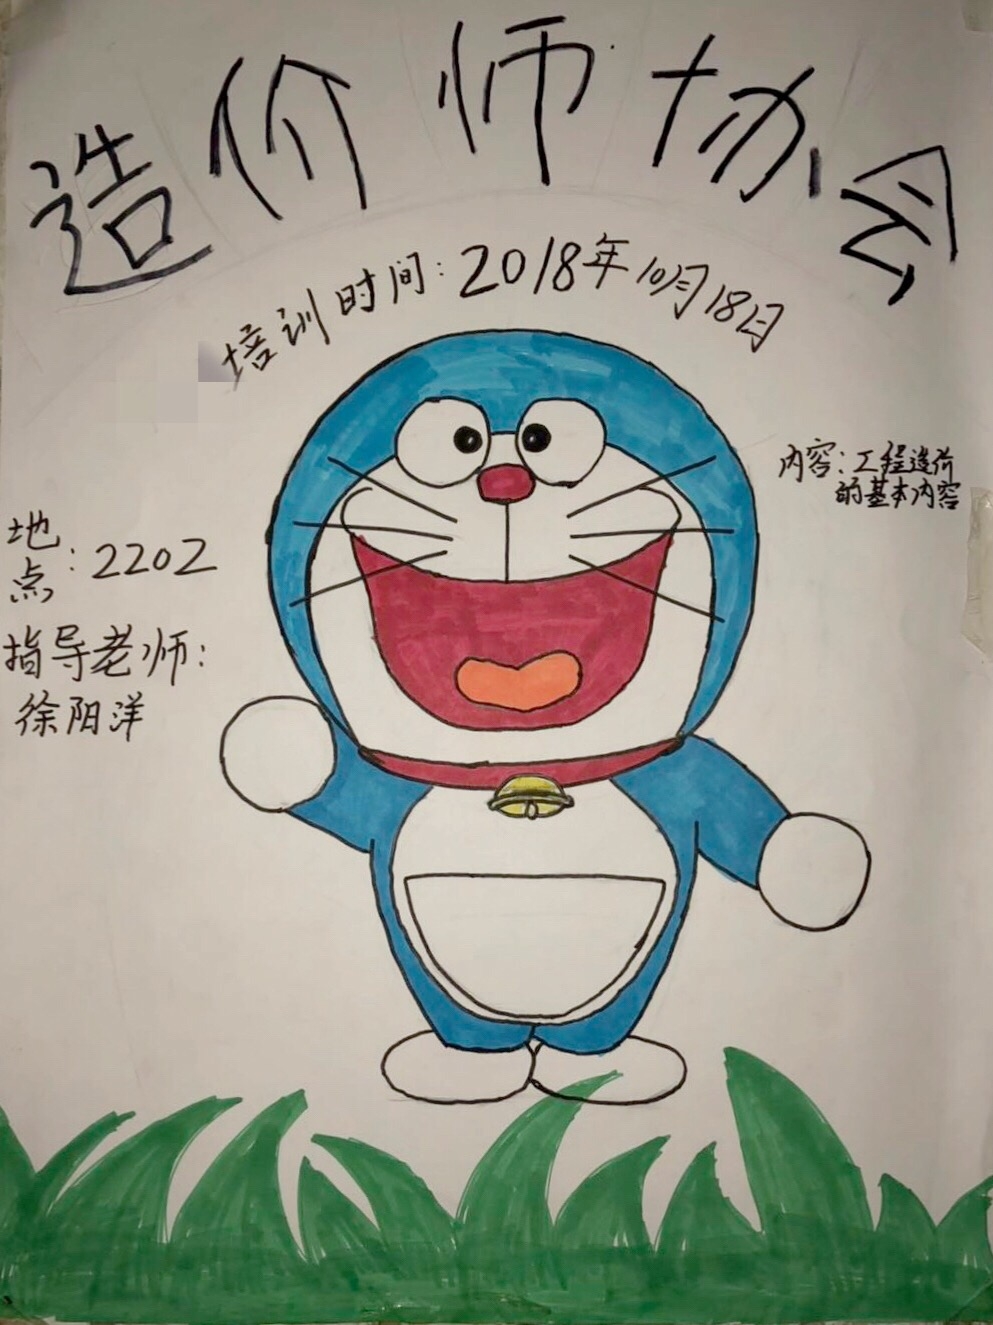 造价师协会
培训时间：2018年10月18日
内容：工程造价
的基本内容
地
点：2202
指导老师：
徐阳洋